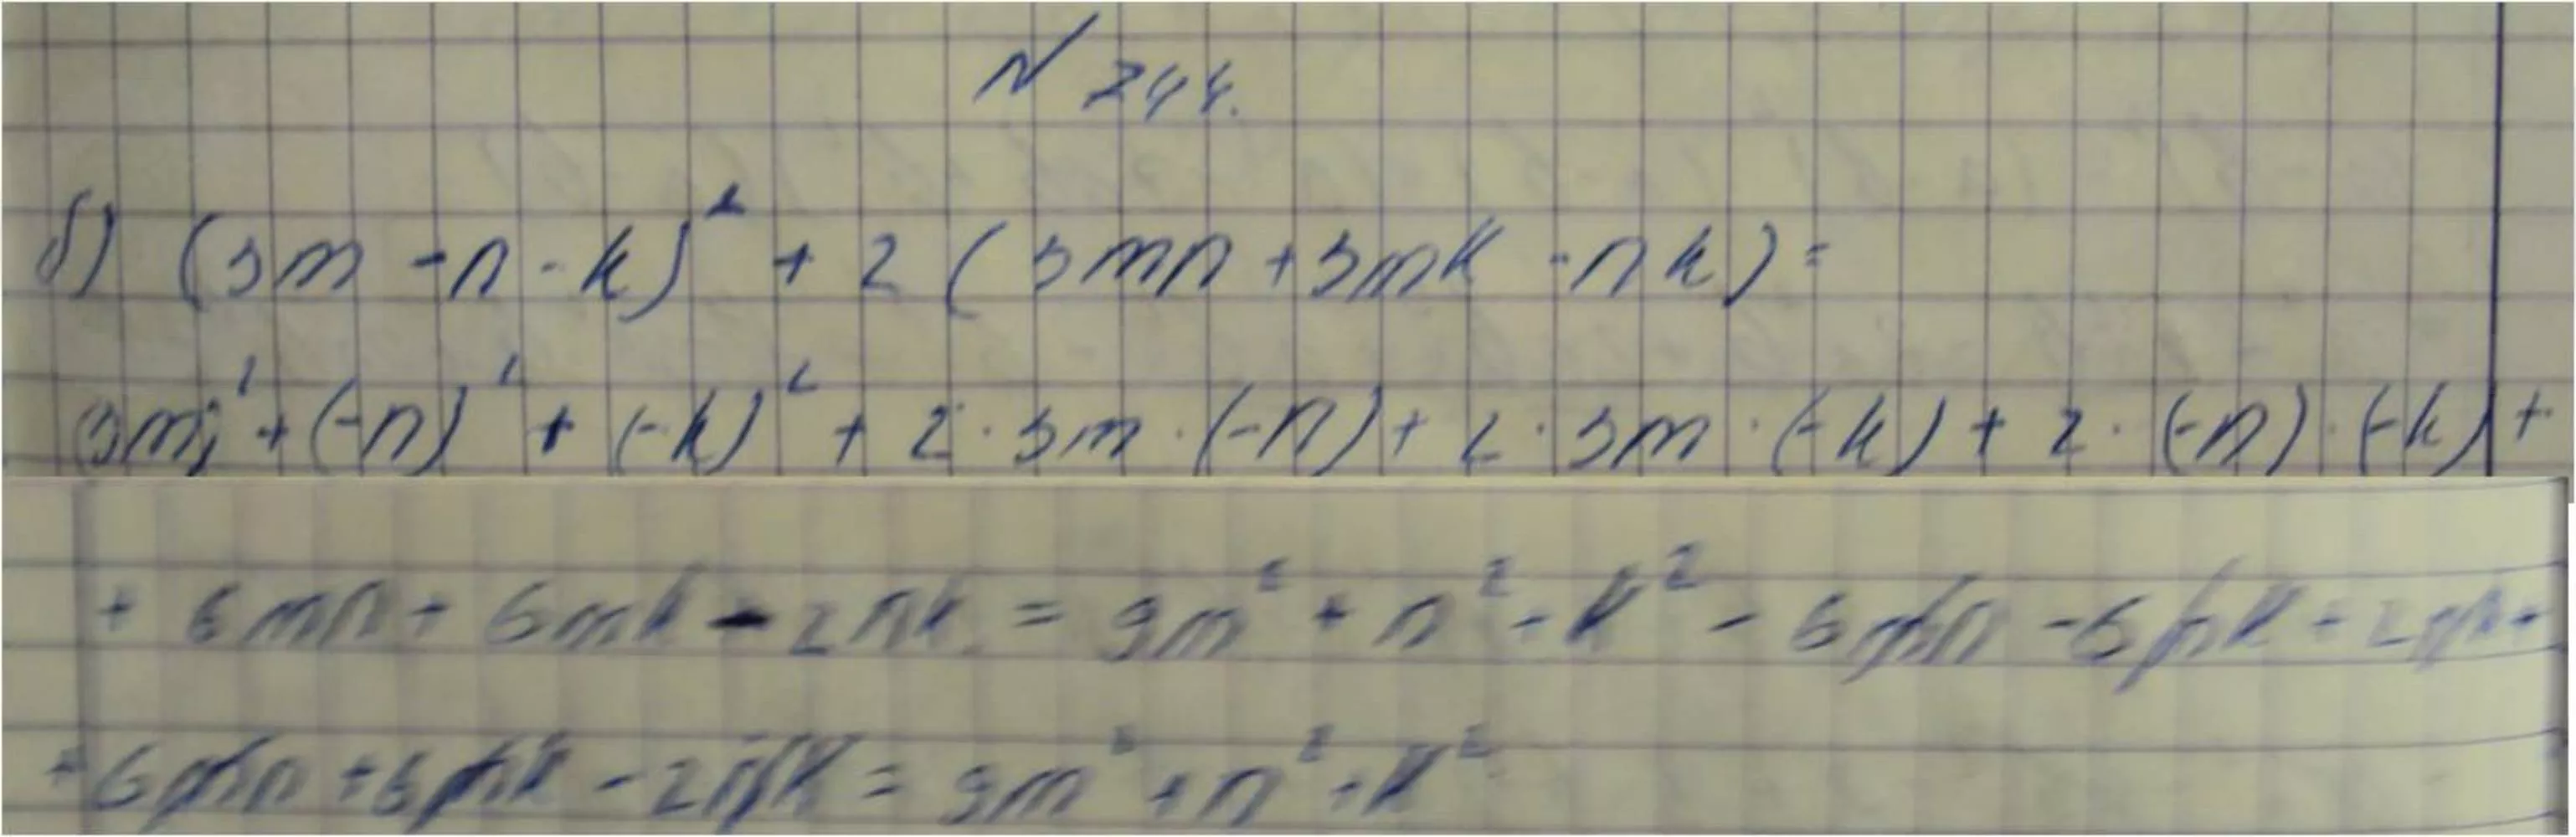 № 244.
б) (3m - n - k)² + 2 (3mn + 3mk - nk) =
(3m)² + (-n)² + (-k)² + 2 · 3m · (-n) + 2 · 3m · (-k) + 2 · (-n) · (-k) +
+ 6mn + 6mk - 2nk = 9m² + n² + k² - 6mn - 6mk + 2nk +
+ 6mn + 6mk - 2nk = 9m² + n² + k²